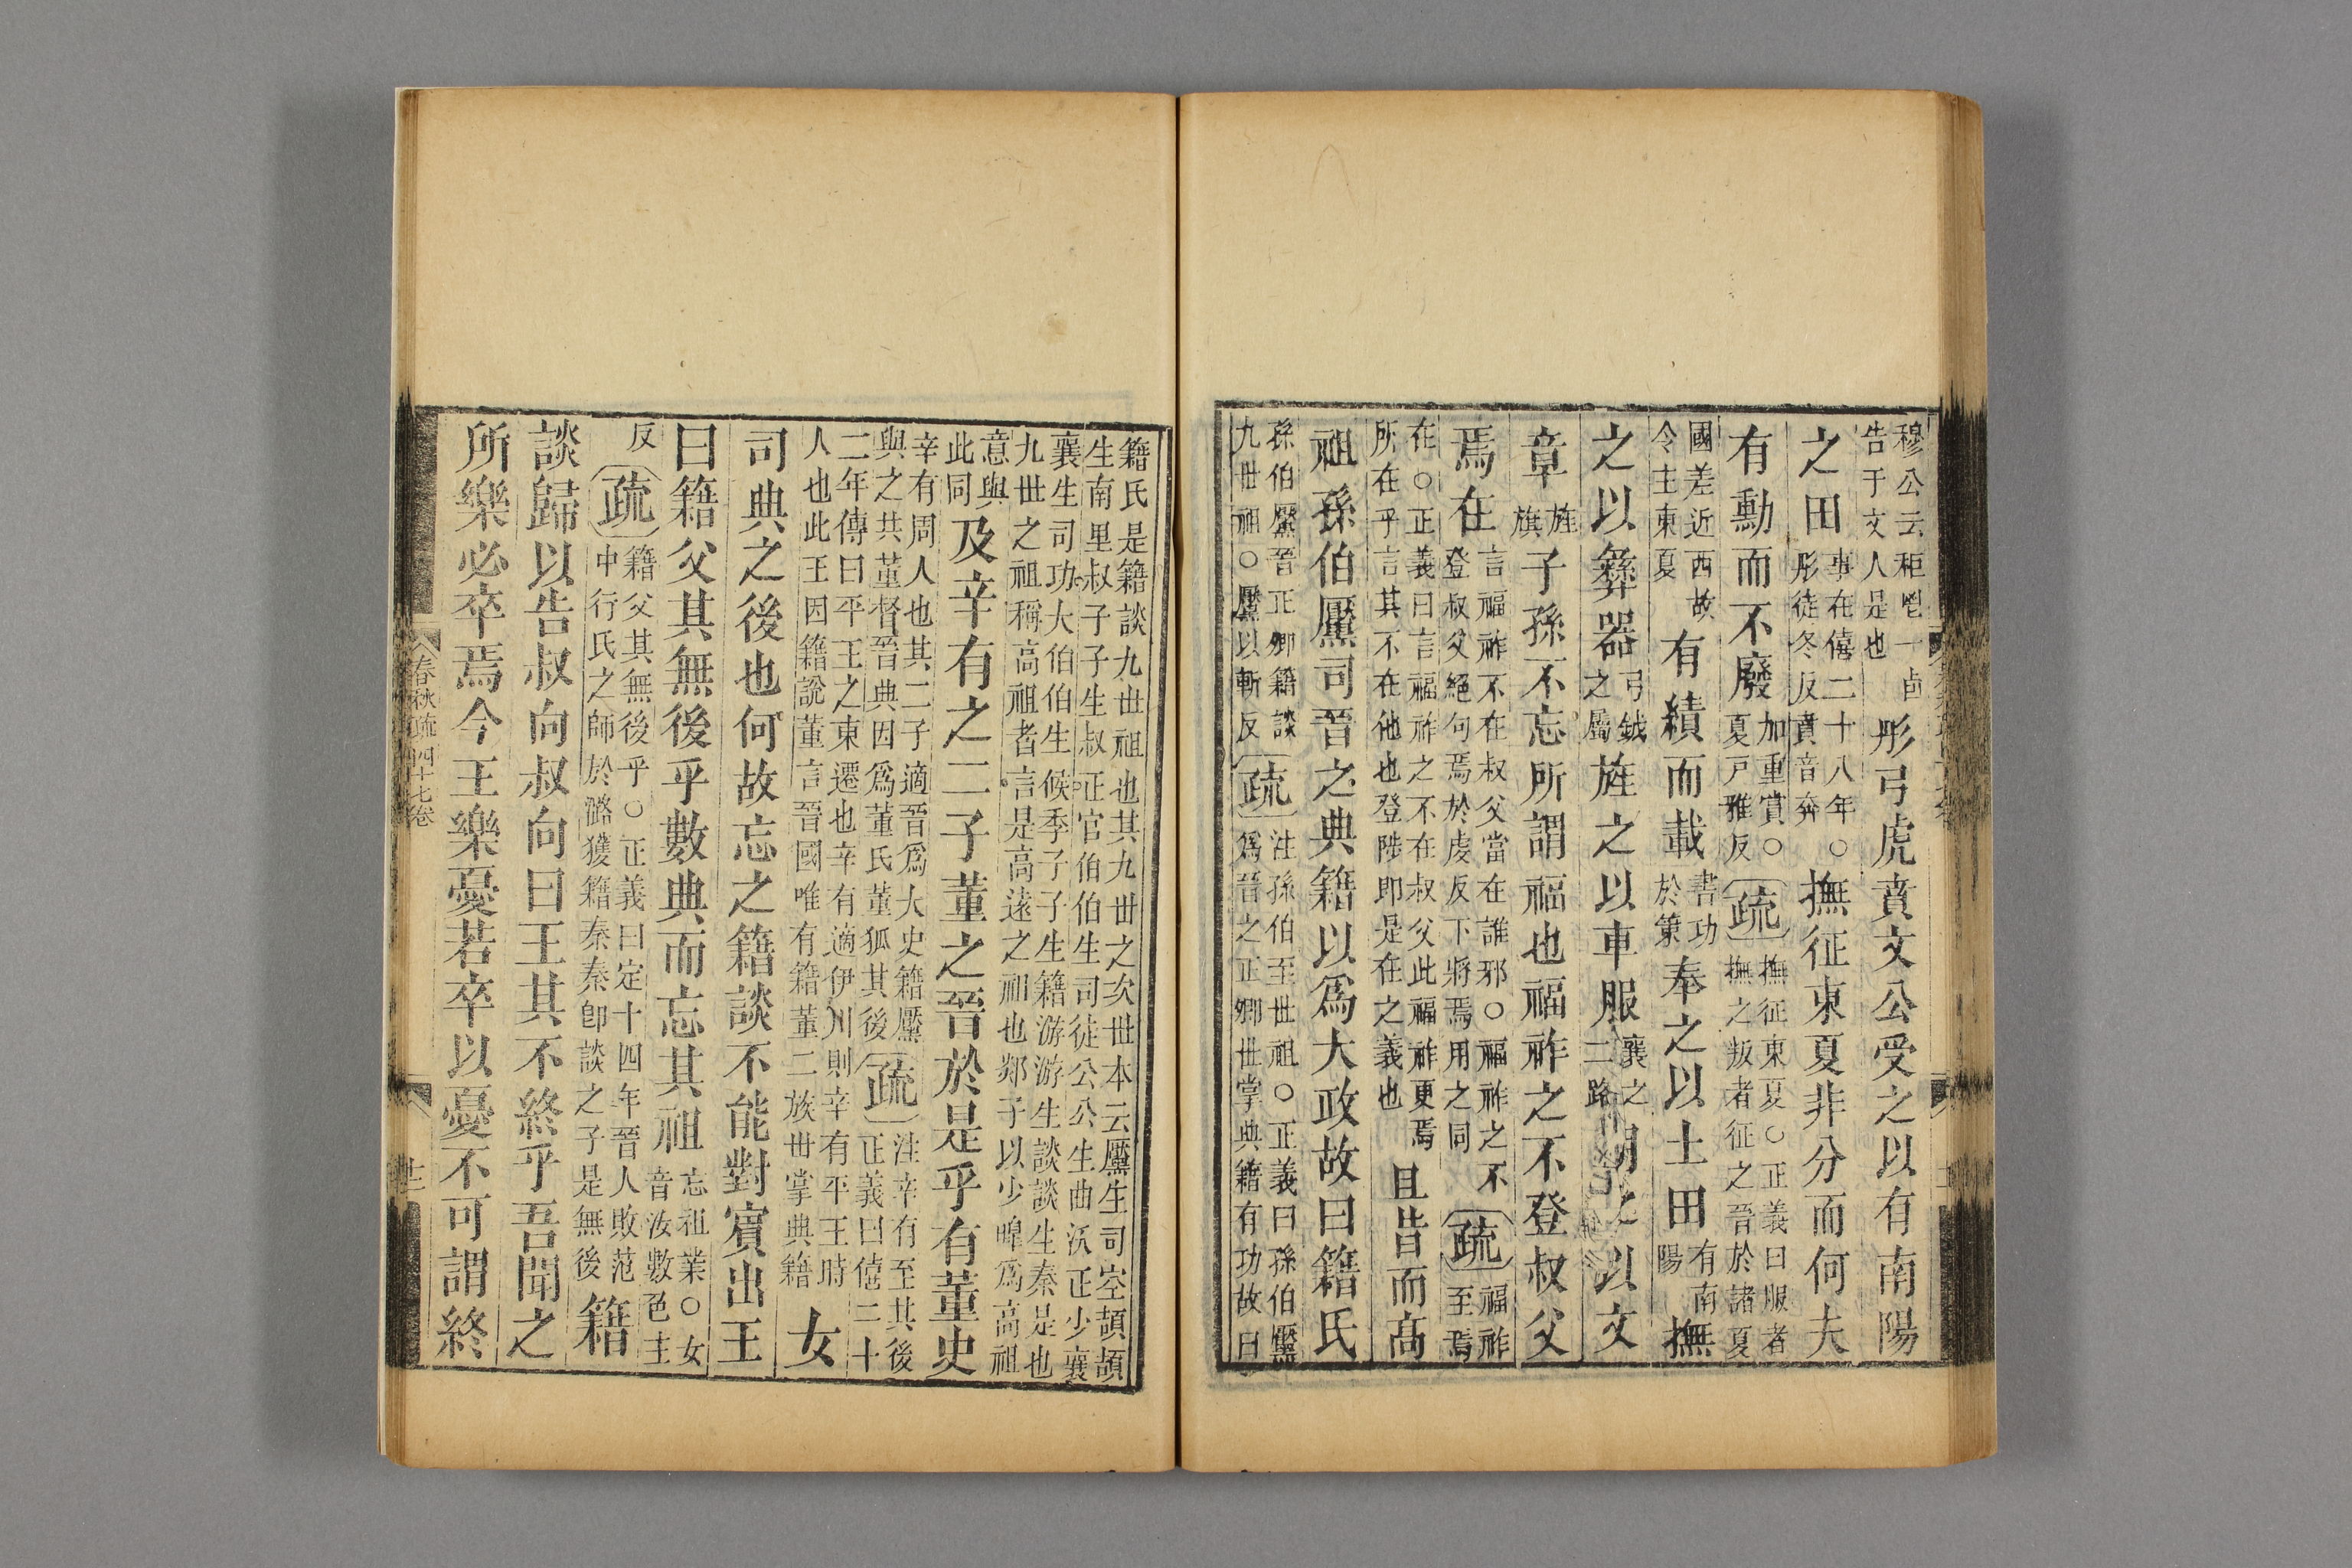 穆公云秬鬯一卣
告于文人是也
彤弓虎賁文公受之以有南陽
之田
事在僖二十八年○
彤徒冬反賁音奔
撫征東夏非分而何夫
有勳而不廢
加重賞○
夏戸雅反
疏
撫征東夏○正義曰服者
撫之叛者征之晉於諸夏
國差近西故
令主東夏
有績而載
書功
於策
奉之以土田
有南
陽
撫
之以彝器
弓鉞
之屬
旌之以車服
襄之
二路
明之以文
章
旌
旗
子孫不忘所謂福也福祚之不登叔父
焉在
言福祚不在叔父當在誰邪○福祚之不
登叔父絕句焉於虔反下將焉用之同
疏
福祚
至焉
在○正義曰言福祚之不在叔父此福祚更焉
所在乎言其不在他也登陟即是在之義也
且昔而高
祖孫伯黶司晉之典籍以爲大政故曰籍氏
孫伯黶晉正卿籍談
九世祖○黶以斬反
疏
注孫伯至世祖○正義曰孫伯黶
爲晉之正卿世掌典籍有功故曰
籍氏是籍談九世祖也其九世之次世本云黶生司空頡頡
生南里叔子子生叔正官伯伯生司徒公公生曲沃正少襄
襄生司功大伯伯生候季子子生籍游游生談談生秦是也
九世之祖稱高祖者言是高遠之祖也郯子以少皥爲高祖
意與
此同
及辛有之二子董之晉於是乎有董史
辛有周人也其二子適晉爲大史籍黶
與之共董督晉典因爲董氏董狐其後
疏
注辛有至其後
正義曰僖二十
二年傳曰平王之東遷也辛有適伊川則辛有平王時
人也此王因籍說董言晉國唯有籍董二族世掌典籍
女
司典之後也何故忘之籍談不能對賓出王
曰籍父其無後乎數典而忘其祖
忘祖業○女
音汝數色主
反
疏
籍父其無後乎○正義曰定十四年晉人敗范
中行氏之師於潞獲籍秦秦卽談之子是無後
籍
談歸以告叔向叔向曰王其不終乎吾聞之
所樂必卒焉今王樂憂若卒以憂不可謂終
春秋疏四十七卷